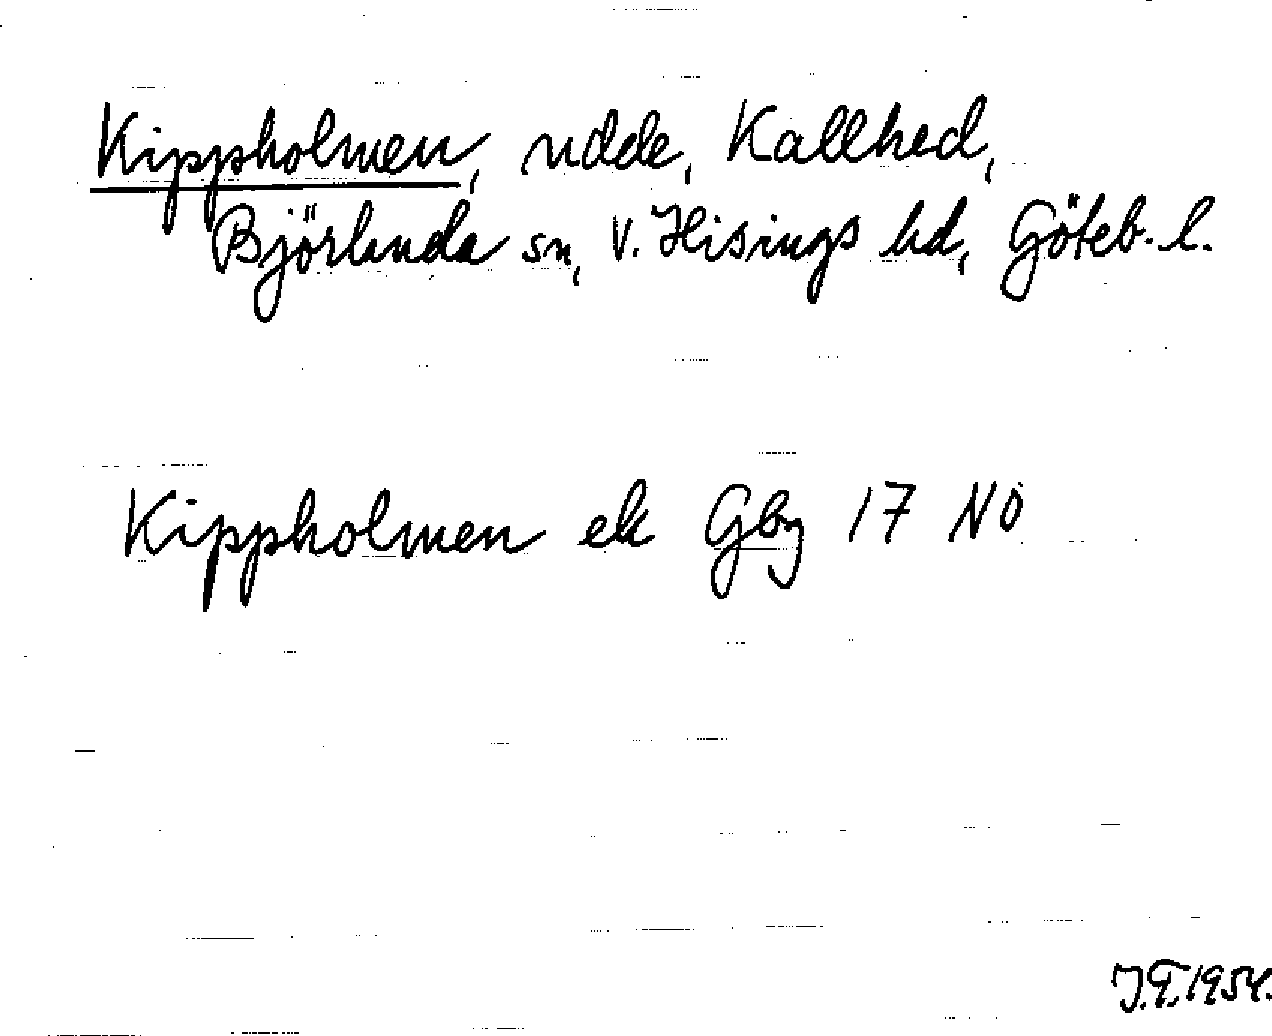 Kippholmen, udde, Kallhed,
Björlanda sn, V. Hisings hd, Göteb. l.
Kippholmen ek Gby 17 NO
J.T. 1954.